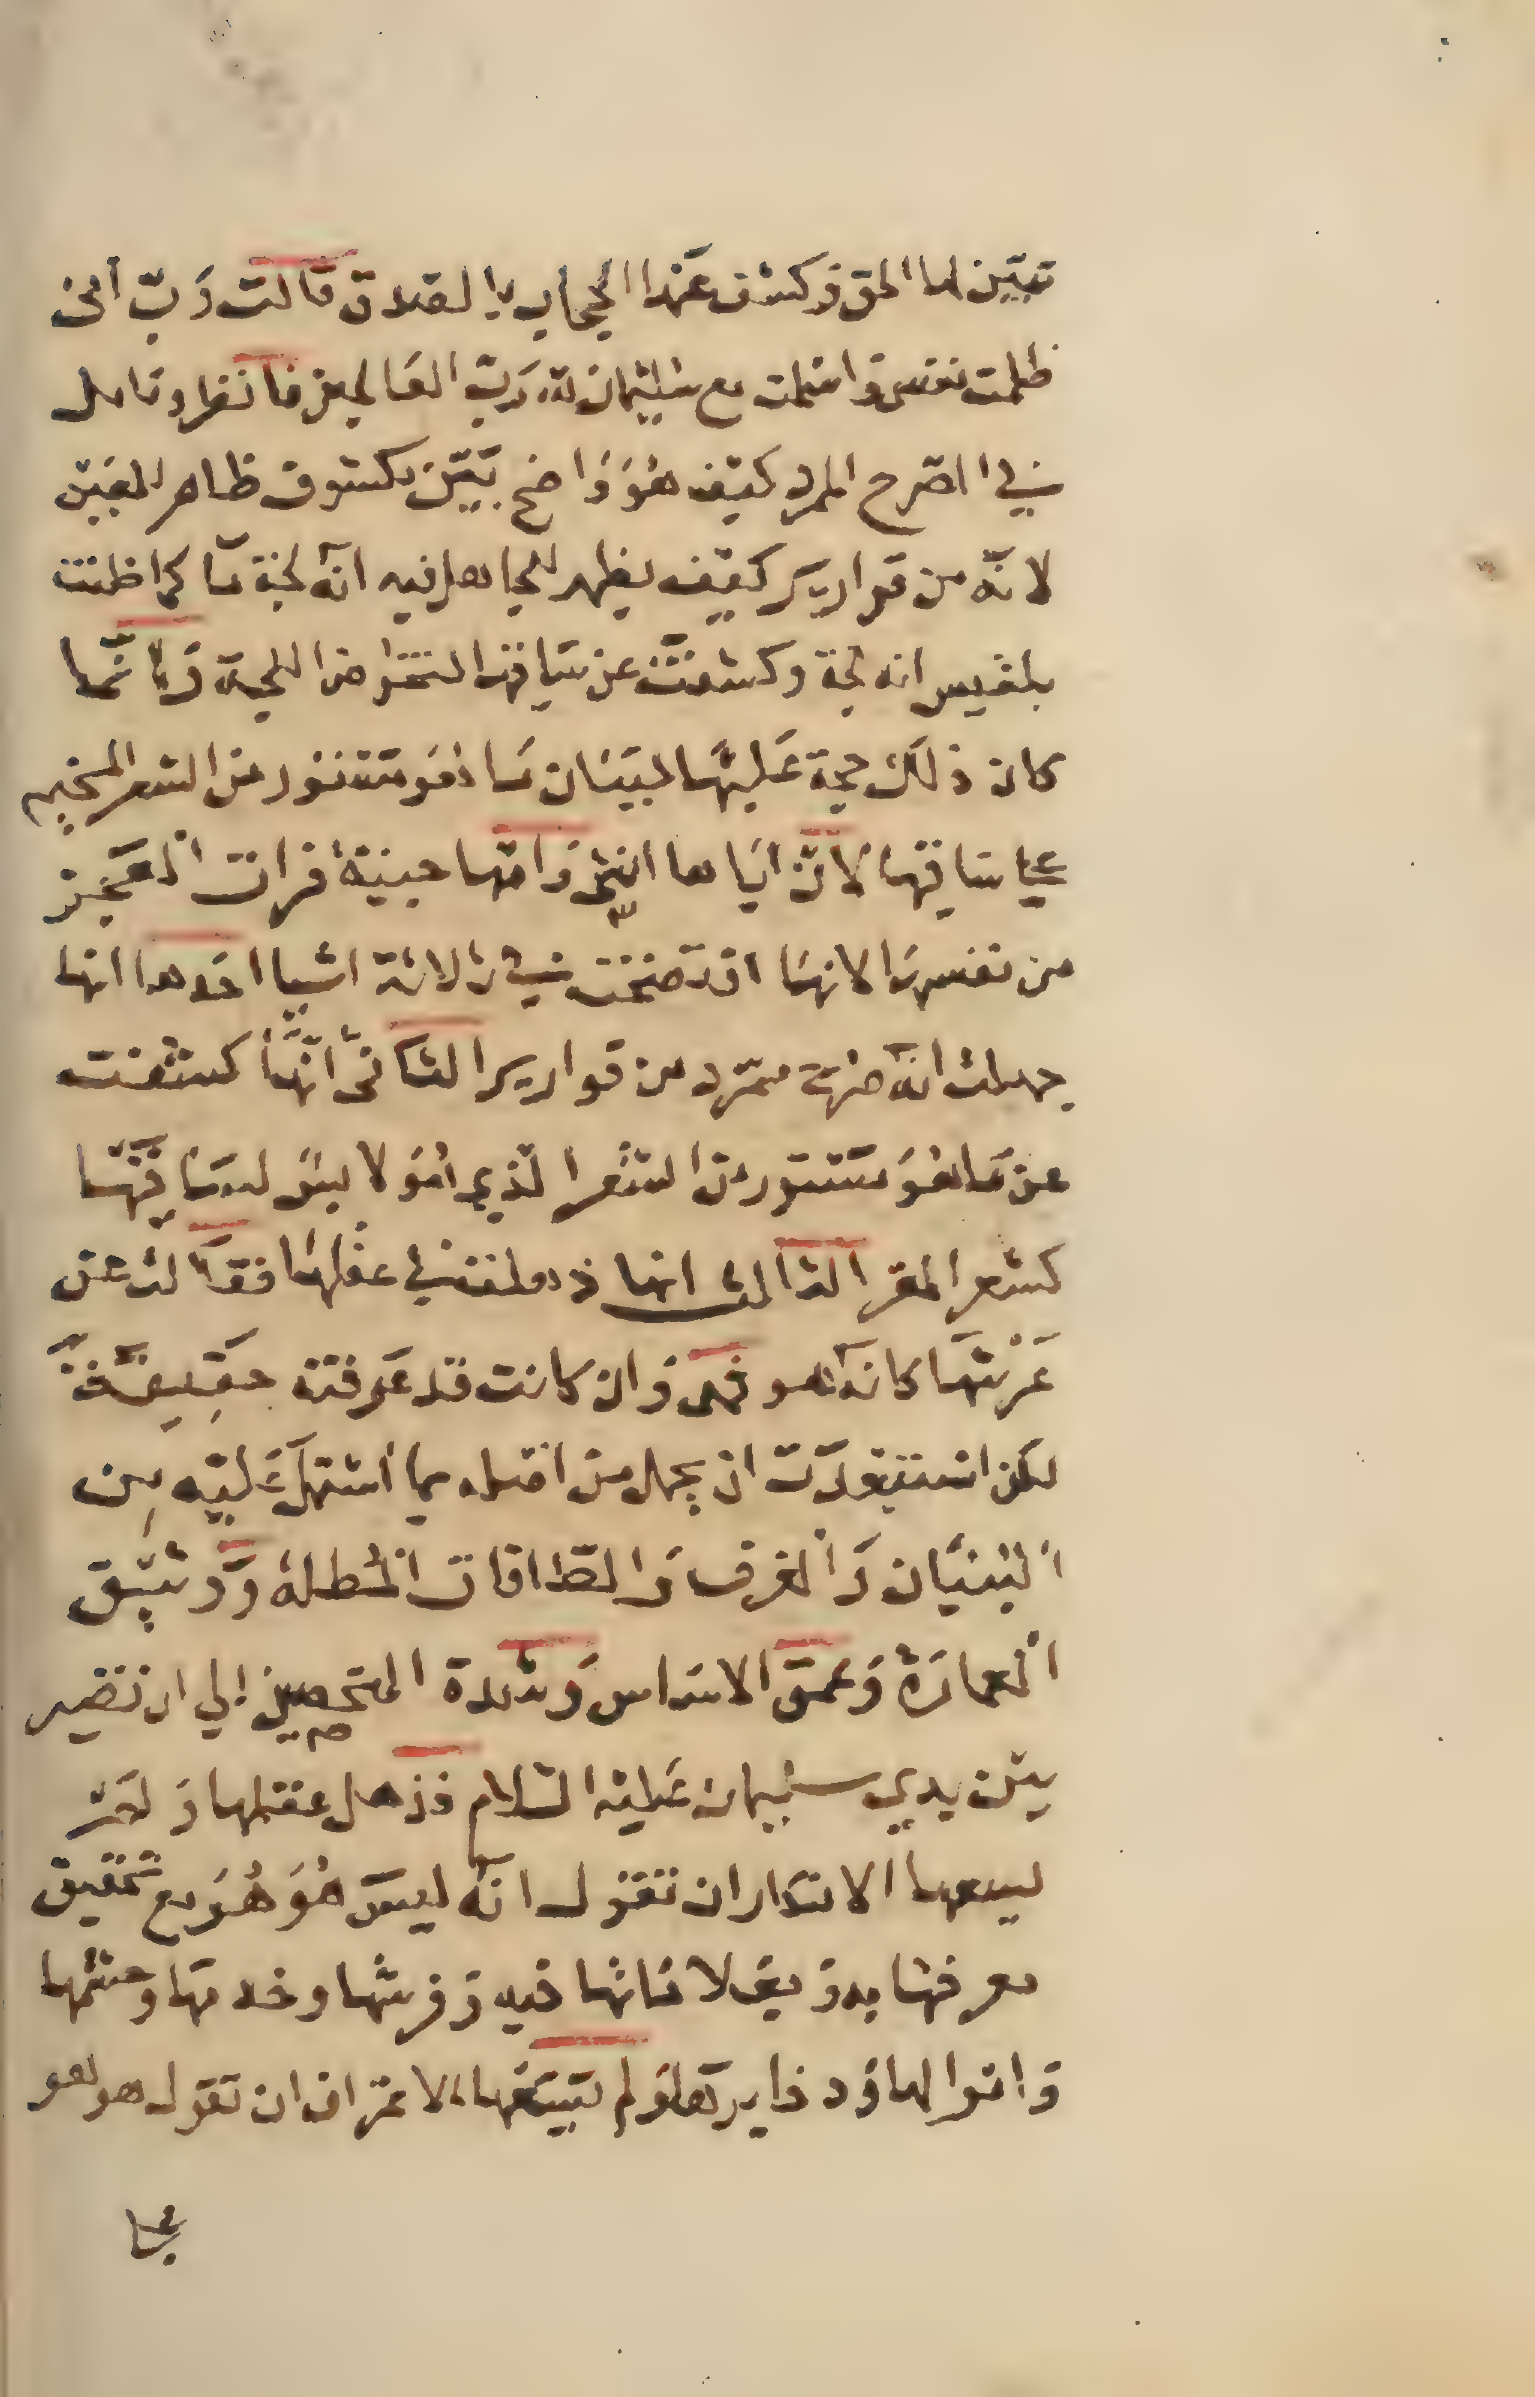 تبيّن لها الحق وكشف عنها الحجاب بالصدق قالت رَبّ انى
ظلمت نفسى واسلمت مع سليمان لله رَبّ العالمين فانظر وتامل
في الصّرح الممرد كيف هُوَ وَاضح بَيّن مكشوف ظاهر للعين
لانّه من قوارير كيف يظهر للجاهل فيه انه لجة مآ كما ظنت
بلقيس انه لجة وكشفت عن سَاقيها لتخوض اللجة وَانّما
كان ذلك حجة عَليهَا لبيَان مَا هُوَ مستور من الشعر
على ساقيها لانّ اباها انسى وَامّها جنية فرات العجز
من نفسهَا لانهَا افتضحَت في ثلاثة اشيا احَدها انها
جهلت انّه صَرح ممرّد من قوارير الثانى انّهَا كشفت
عن مَا هُوَ مستور من الشعر الذي هُوَ لابسٌ لسَاقيهَا
كشعر المعز الثالث انها ذهلت في عقلهَا فقالت عن
عَرْشهَا كانه هو فهى وَان كانت قد عَرفته حقيقَةً
لكن استبعدَت ان يحمل من اصله بما اشتمل عَليه مِن
البنيَان وَالغرف وَالطاقات المطلة وَوَثيق
العمارَة وَعمق الاسَاس وَشدة التحصين الي ان تصير
بين يدي سليمان عَليه السّلام فذهل عقلها وَلم
يسعها الانكار ان تقول انّه ليسَ هُوَ هُوَ مع تحقيق
معرفتها به وَبعلاماتها فيه وَفرشها وخدمها وحشمها
وَاموالها وذخايرها وَلم يسعها الاعتراف ان تقول هو هو